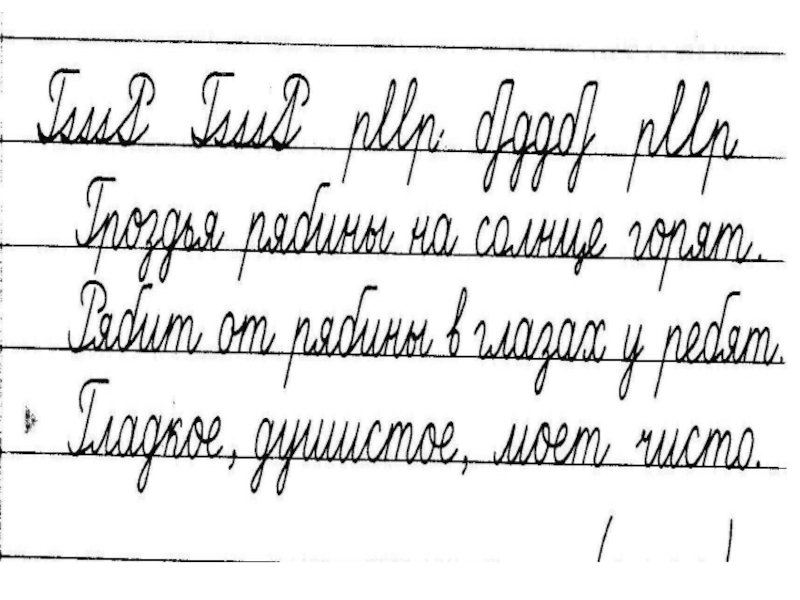 Гроздья рябины на солнце горят.
Рябит от рябины в глазах у ребят.
Гладкое, душистое, моет чисто.